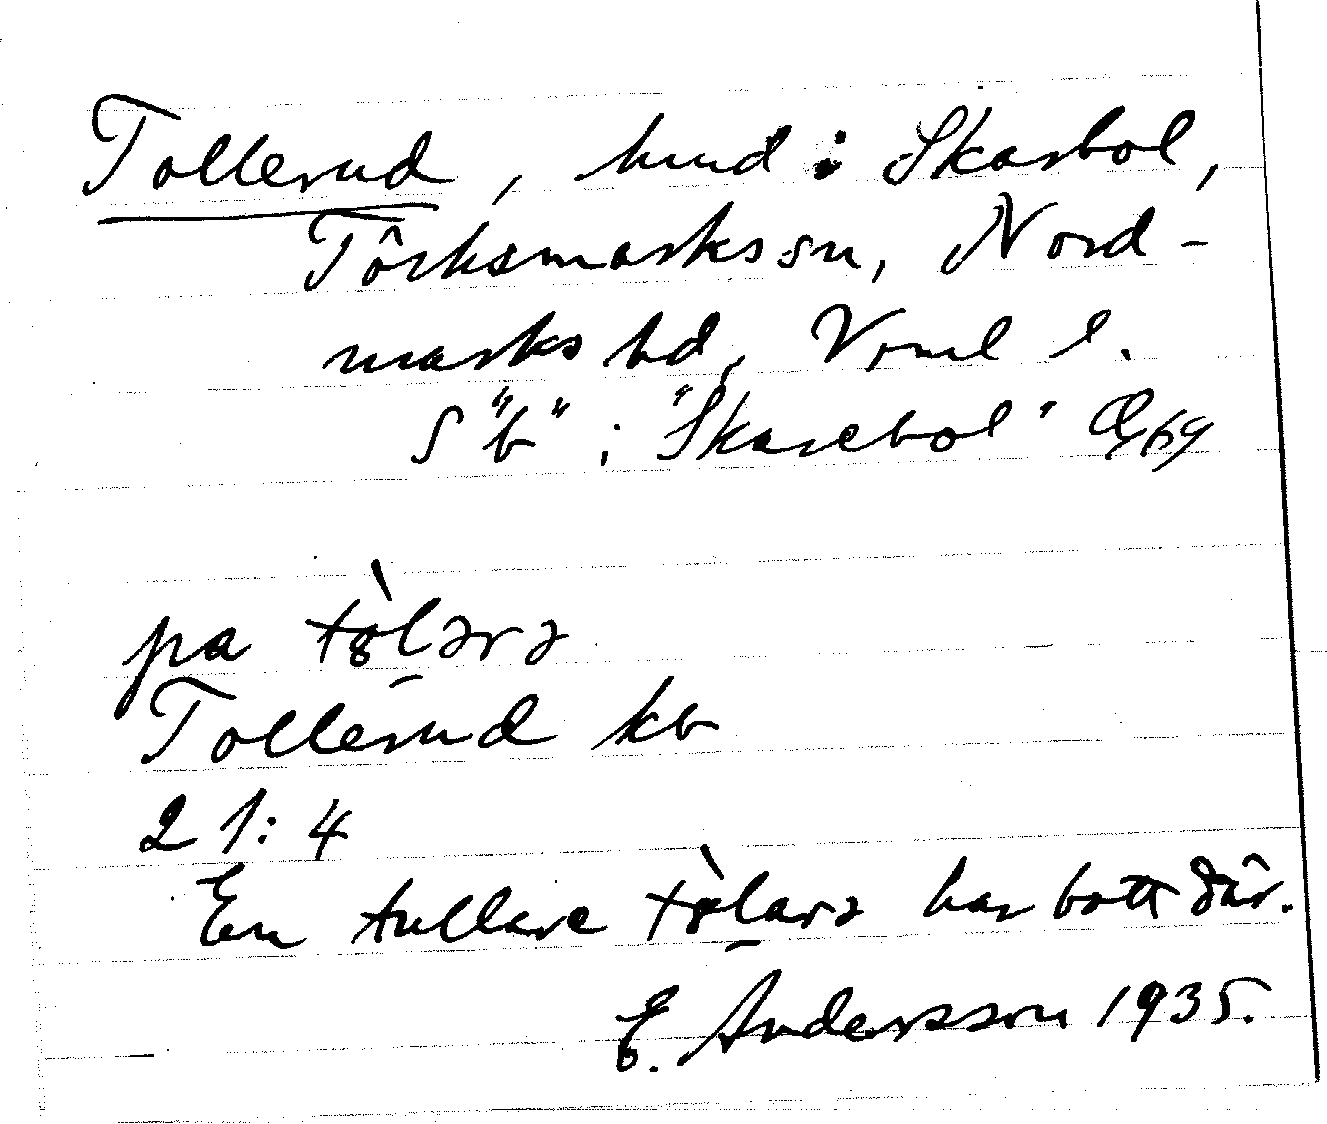 Tollerud, hmd i Skarbol,
Töcksmarks sn, Nord-
marks hd, Vrml l.
S "b" i "Skarebol"
på
Tollerud kb
21:4
En tullare har bott där.
E. Andersson 1935.